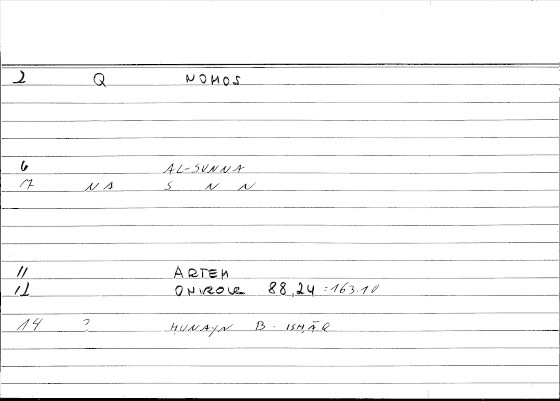 2 Q NOMOS
6 AL-SUNNA
17 NA S N N
11 ARTEM
12 ONIROCR 88,24 :163.10
14 ? HUNAYN B. ISHĀQ